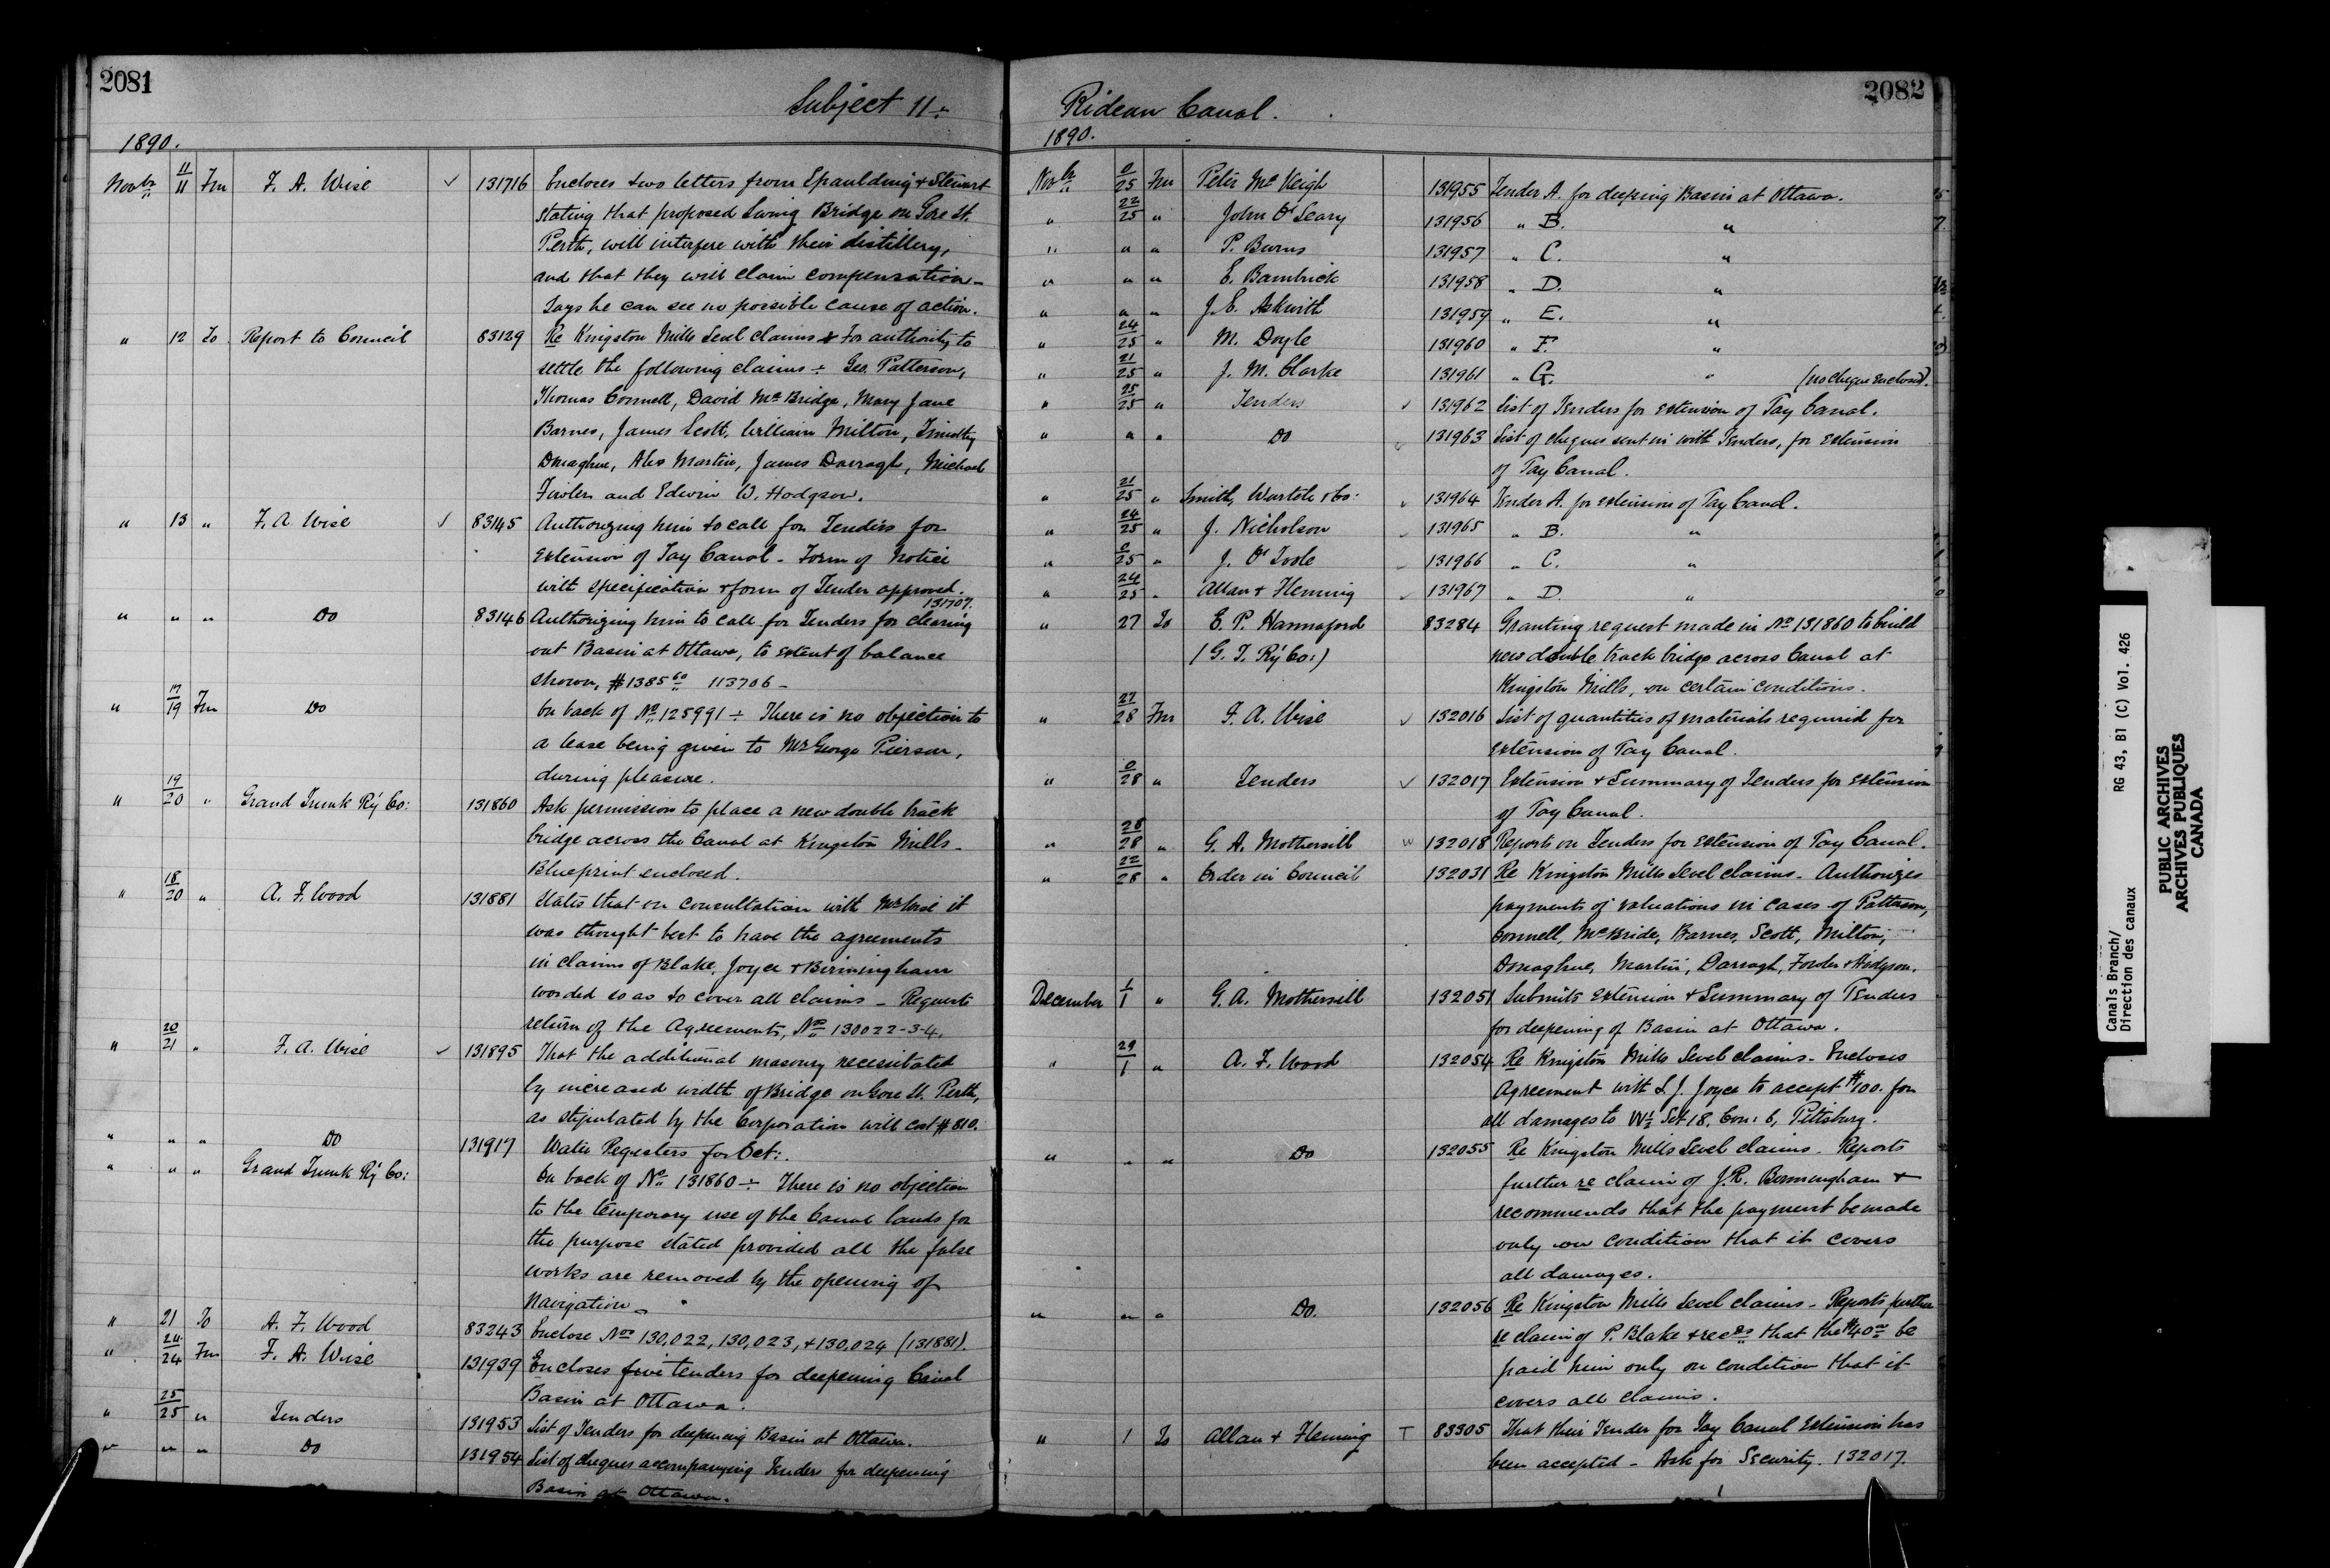 2081
Subject 11 ÷
1890.
Novbr 11/11 Fm F. A. Wise ✓ 131716 Encloses two letters from Spaulding & Stewart
stating that proposed Swing Bridge on Gore St.
Perth, will interfere with their distillery,
and that they will claim compensation –
Says he can see no possible cause of action.
" 12 To Report to Council 83129 Re Kingston Mills Level claims & for authority to
settle the following claims ÷ Geo. Patterson,
Thomas Connell, David McBride, Mary Jane
Barnes, James Scott, William Milton, Timothy
Donaghue, Alex Martin, James Darragh, Michael
Fowler and Edwin W. Hodgson.
" 13 " F. A. Wise ✓ 83145 Authorizing him to call for Tenders for
extension of Tay Canal – Form of Notice
with specification & form of Tender approved.
131707.
" " " Do 83146 Authorizing him to call for Tenders for clearing
out Basin at Ottawa, to extent of balance
shown, $1385 60 113706 –
" 17/19 Fm Do On back of No 125991 ÷ There is no objection to
a lease being given to Mr George Pierson,
during pleasure.
" 19/20 " Grand Trunk Ry Co: 131860 Ask permission to place a new double track
bridge across the Canal at Kingston Mills –
Blueprint enclosed.
" 18/20 " A. F. Wood 131881 States that on consultation with Mr Wise it
was thought best to have the agreements
in claims of Blake, Joyce & Birmingham
worded so as to cover all claims – Requests
return of the Agreements, Nos 130022-3-4.
" 20/21 " F. A. Wise ✓ 131895 That the additional masonry necessitated
by increased width of Bridge on Gore St. Perth,
as stipulated by the Corporation will cost $810.
" " " Do 131917 Water Registers for Oct:.
" " " Grand Trunk Ry Co: On back of No 131860 ÷ There is no objection
to the temporary use of the Canal lands for
the purpose stated provided all the false
works are removed by the opening of
Navigation –
" 21 To A. F. Wood 83243 Enclose Nos 130,022, 130,023, & 130,024 (131881).
" 24/24 Fm F. A. Wise 131939 Encloses five tenders for deepening Canal
Basin at Ottawa.
" 25/25 " Tenders 131953 List of Tenders for deepening Basin at Ottawa.
" " " Do 131954 List of cheques accompanying Tenders for deepening
Basin at Ottawa.
2082
Rideau Canal.
1890.
Novbr 0/25 Fm Peter McVeigh 131955 Tender A. for deeping Basin at Ottawa.
" 22/25 " John O'Leary 131956 " B. "
" " " P. Burns 131957 " C. "
" " " E. Bambrick 131958 " D. "
" " " J. E. Askwith 131959 " E. "
" 24/25 " M. Doyle 131960 " F. "
" 21/25 " J. M. Clarke 131961 " G. " (no cheque enclosed).
" 25/25 " Tenders ✓ 131962 List of Tenders for extension of Tay Canal.
" " " Do ✓ 131963 List of cheques sent in with Tenders, for extension
of Tay Canal.
" 21/25 " Smith, & Co: ✓ 131964 Tender A. for extension of Tay Canal.
" 24/25 " J. Nicholson ✓ 131965 " B. "
" 0/25 " J. O'Toole ✓ 131966 " C. "
" 24/25 " Allan & Fleming ✓ 131967 " D. "
" 27 To E. P. Hannaford 83284 Granting request made in No 131860 to build
(G. T. Ry Co:) new double track bridge across Canal at
Kingston Mills, on certain conditions.
" 27/28 Fm F. A. Wise ✓ 132016 List of quantities of materials required for
extension of Tay Canal.
" 0/28 " Tenders ✓ 132017 Extension & Summary of Tenders for extension
of Tay Canal.
" 28/28 " G. A. Mothersill ✓ 132018 Reports on Tenders for extension of Tay Canal.
" 22/28 " Order in Council 132031 Re Kingston Mills Level claims – Authorizes
payments of valuations in cases of Patterson,
Connell, McBride, Barnes, Scott, Milton,
Donaghue, Martin, Darragh, Fowler & Hodgson.
December 1/1 " G. A. Mothersill 132051 Submits extension & Summary of Tenders
for deepening of Basin at Ottawa.
" 29/1 " A. F. Wood 132054 Re Kingston Mills Level claims – Encloses
Agreement with L. J. Joyce to accept $100. for
all damages to W½ Lot 18, Con: 6, Pittsburg.
" " " Do 132055 Re Kingston Mills Level claims. Reports
further re claim of J. R. Birmingham &
recommends that the payment be made
only on condition that it covers
all damages.
" " " Do. 132056 Re Kingston Mills Level claims – Reports further
re claim of P. Blake & recds that the $40 00 be
paid him only on condition that it
covers all claims.
" 1 To Allan & Fleming T 83305 That their Tender for Tay Canal Extension has
been accepted – Ask for Security. 132017.
Canals Branch/
Direction des canaux
RG 43, B1 (C) Vol. 426
PUBLIC ARCHIVES
ARCHIVES PUBLIQUES
CANADA